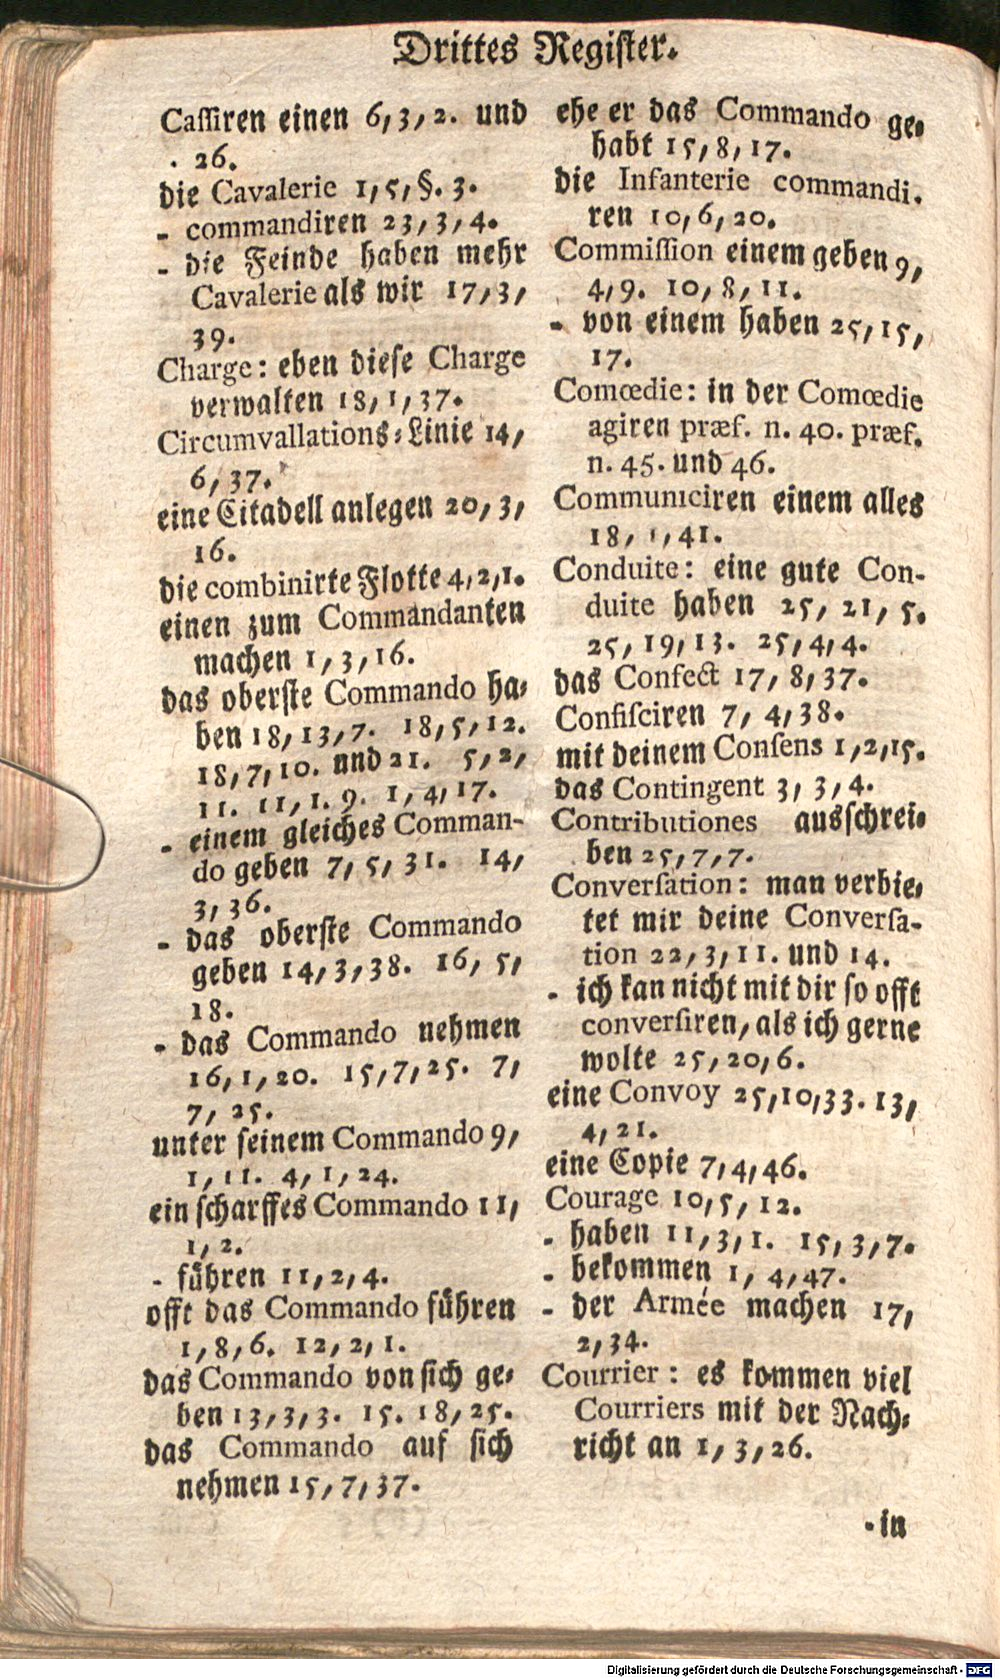 Drittes Register.
Cassiren einen 6, 3, 2. und
26.
die Cavalerie 1, 5, §. 3.
- commandiren 23, 3, 4.
- die Feinde haben mehr
Cavalerie als wir 17, 3,
39.
Charge: eben diese Charge
verwalten 18, 1, 37.
Circumvallations-Linie 14,
6, 37.
eine Citadell anlegen 20, 3,
16.
die combinirte Flotte 4, 2, 1.
einen zum Commandanten
machen 1, 3, 16.
das oberste Commando ha-
ben 18, 13, 7. 18, 5, 12.
18, 7, 10. und 21. 5, 2,
11. 11, 1. 9. 1, 4, 17.
- einem gleiches Comman-
do geben 7, 5, 31. 14,
3, 36.
- das oberste Commando
geben 14, 3, 38. 16, 5,
18.
- das Commando nehmen
16, 1, 20. 15, 7, 25. 7,
7, 25.
unter seinem Commando 9,
1, 11. 4, 1, 24.
ein scharffes Commando 11,
1, 2.
- führen 11, 2, 4.
offt das Commando führen
1, 8, 6. 12, 2, 1.
das Commando von sich ge-
ben 13, 3, 3. 15. 18, 25.
das Commando auf sich
nehmen 15, 7, 37.
ehe er das Commando ge-
habt 15, 8, 17.
die Infanterie commandi-
ren 10, 6, 20.
Commission einem geben 9,
4, 9. 10, 8, 11.
- von einem haben 25, 15,
17.
Comœdie: in der Comœdie
agiren præf. n. 40. præf.
n. 45. und 46.
Communiciren einem alles
18, 1, 41.
Conduite: eine gute Con-
duite haben 25, 21, 5.
25, 19, 13. 25, 4, 4.
das Confect 17, 8, 37.
Confisciren 7, 4, 38.
mit deinem Consens 1, 2, 15.
das Contingent 3, 3, 4.
Contributiones ausschrei-
ben 25, 7, 7.
Conversation: man verbie-
tet mir deine Conversa-
tion 22, 3, 11. und 14.
- ich kan nicht mit dir so offt
conversiren, als ich gerne
wolte 25, 20, 6.
eine Convoy 25, 10, 33. 13,
4, 21.
eine Copie 7, 4, 46.
Courage 10, 5, 12.
- haben 11, 3, 1. 15, 3, 7.
- bekommen 1, 4, 47.
- der Armée machen 17,
2, 34.
Courrier: es kommen viel
Courriers mit der Nach-
richt an 1, 3, 26.
- in
Digitalisierung gefördert durch die Deutsche Forschungsgemeinschaft - DFG